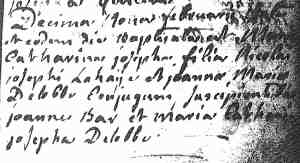 Decima nona februarii
et eodem die baptisata est
Catharina josepha filia
josephi Lahaye et joanna Maria
Delobbe Conjugum Susceptoribus
joannes Bar et maria Cathar
josepha Delobbe